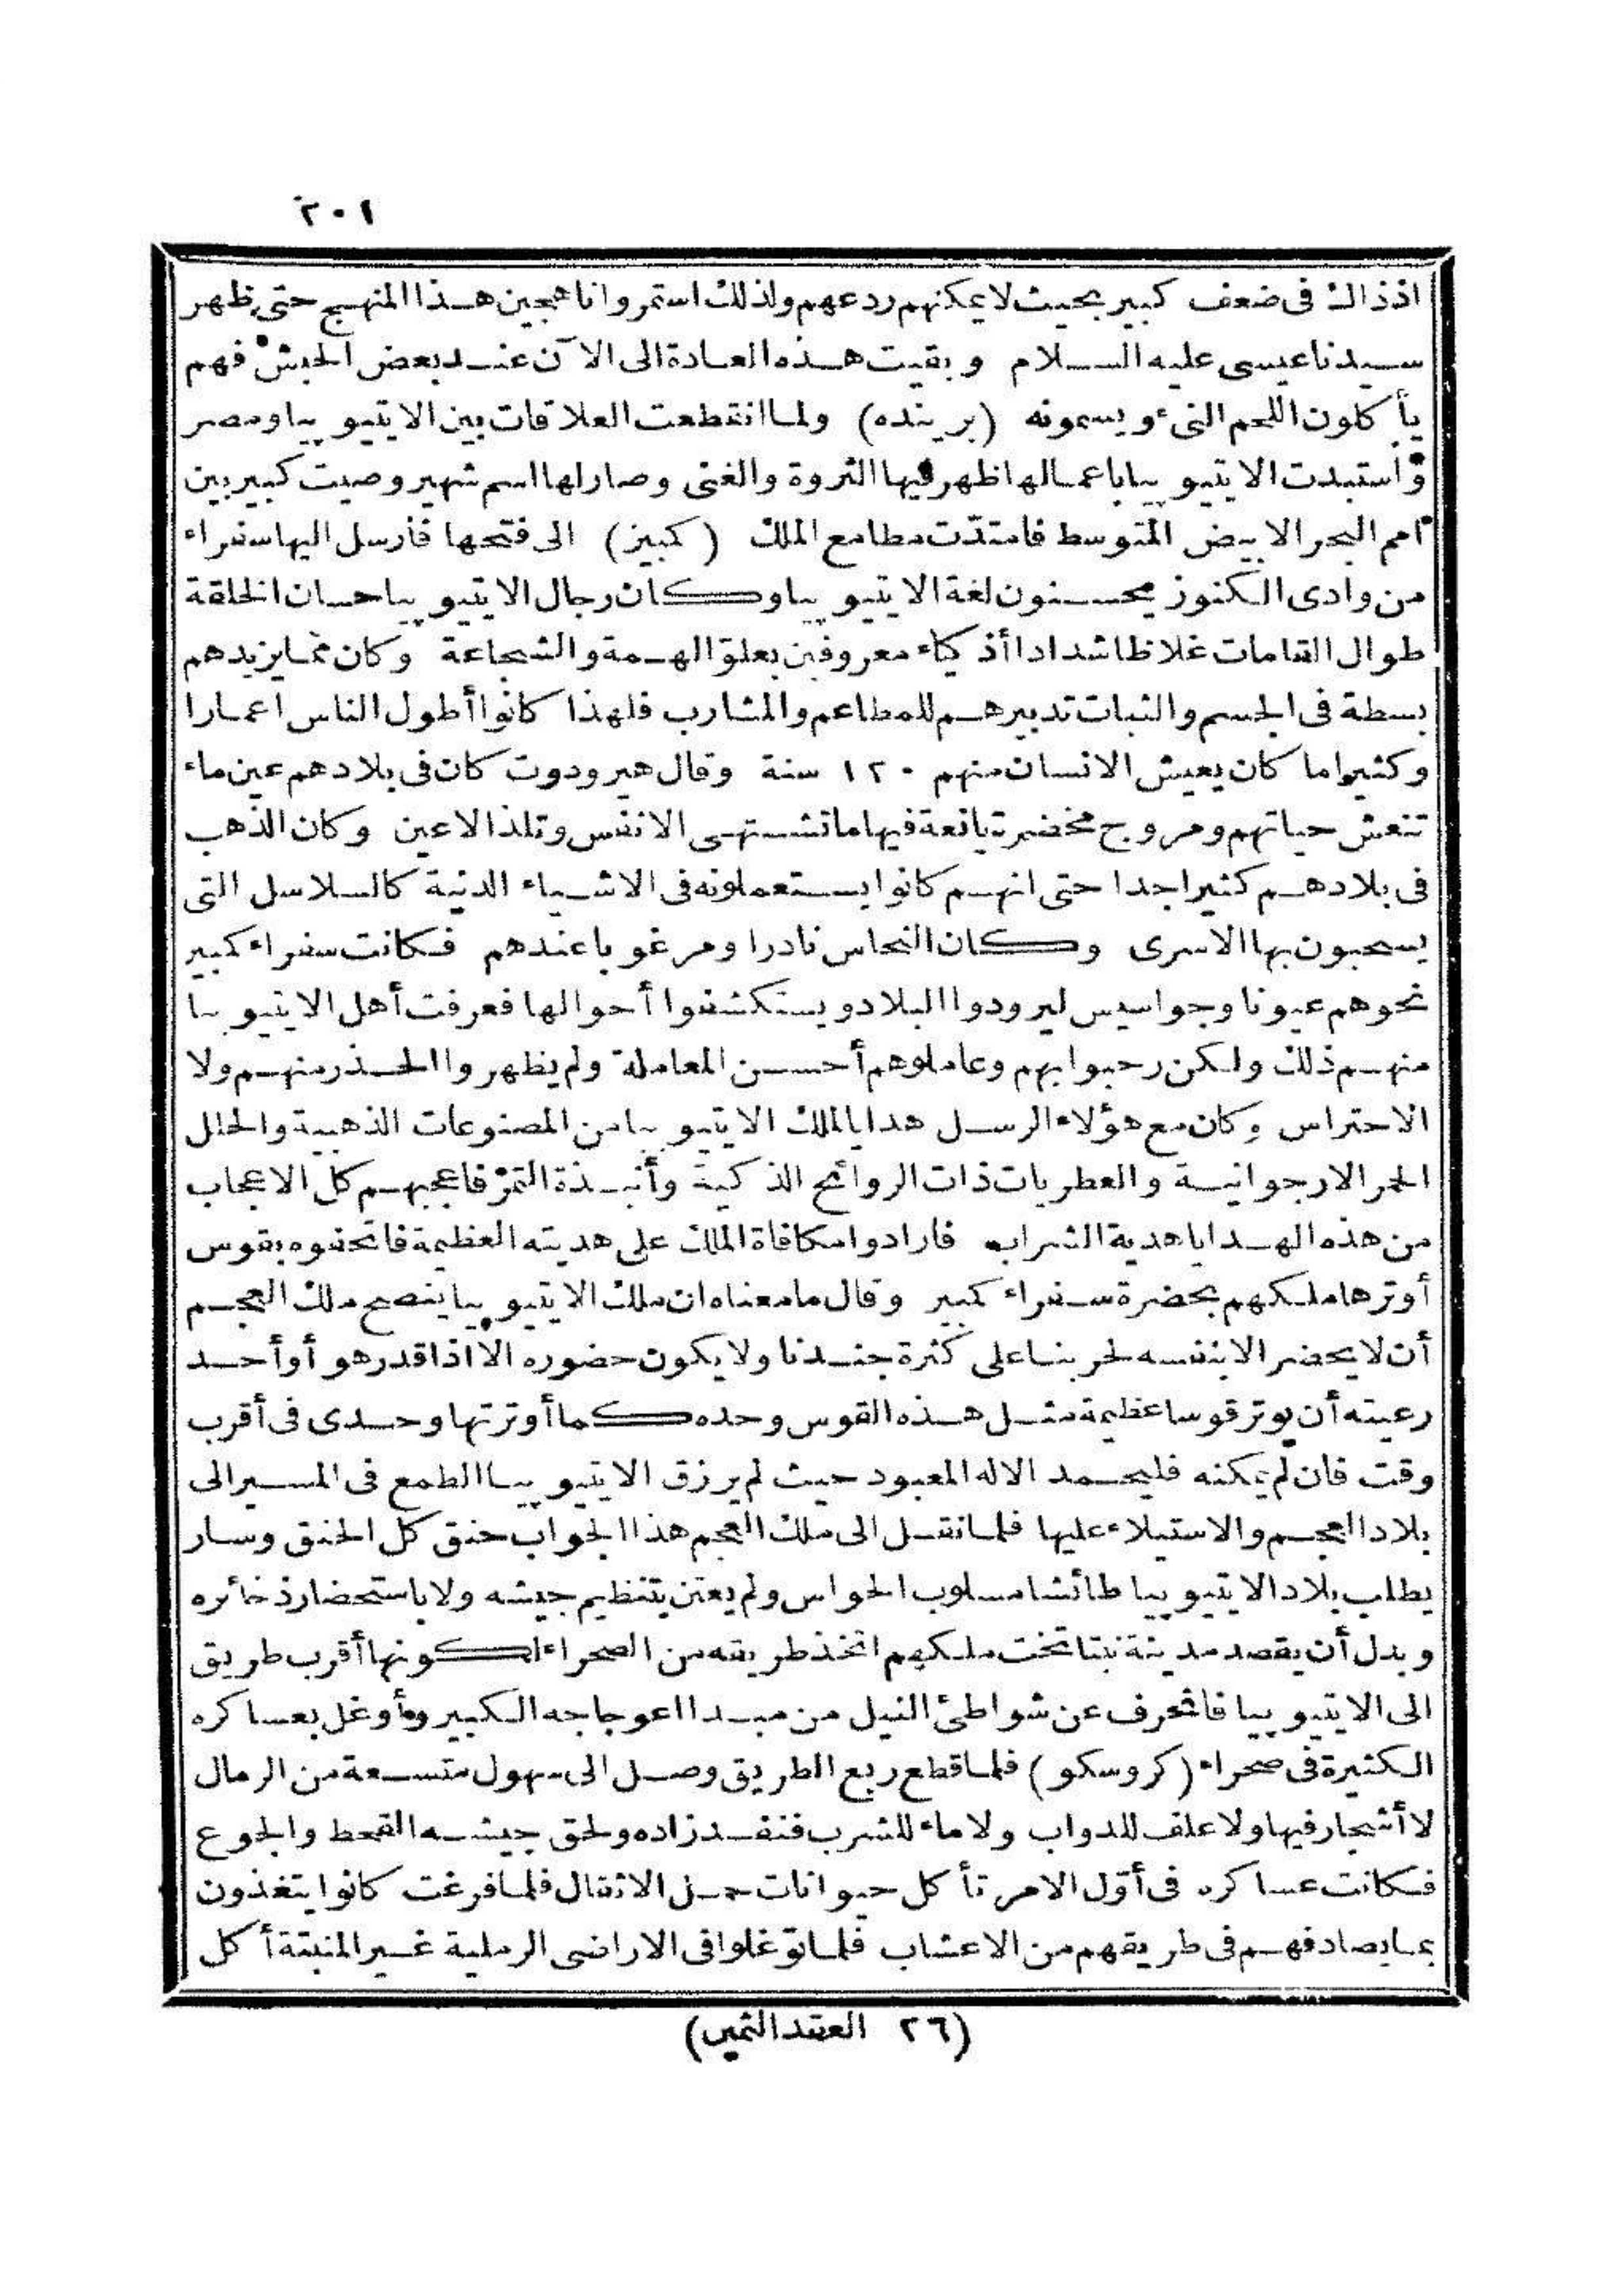 ٢٠١
اذ ذاك فى ضعف كبير بحيث لا يمكنهم ردعهم ولذلك استمروا ناهجين هذا المنهج حتى ظهر
سيدنا عيسى عليه السلام وبقيت هذه العادة الى الآن عند بعض الحبش فهم
يأكلون اللحم النىء ويسمونه (برينده) ولما انقطعت العلاقات بين الايتيوبيا ومصر
واستبدت الايتيوبيا باعمالها ظهر فيها الثروة والغنى وصار لها اسم شهير وصيت كبير بين
امم البحر الابيض المتوسط فامتدّت مطامع الملك (كبيز) الى فتحها فأرسل اليها سفراء
من وادى الكنوز يحسنون لغة الايتيوبيا وكان رجال الايتيوبيا حسان الخلقة
طوال القامات غلاظا شدادا أذكياء معروفين بعلوّ الهمة والشجاعة وكان مما يزيدهم
بسطة فى الجسم والثبات تدبيرهم للمطاعم والمشارب فلهذا كانوا أطول الناس اعمارا
وكثيرا ما كان يعيش الانسان منهم ١٢٠ سنة وقال هيرودوت كان فى بلادهم عين ماء
تنعش حياتهم ومروج مخضرة يانعة فيها ما تشتهى الانفس وتلذ الاعين وكان الذهب
فى بلادهم كثيرا جدا حتى انهم كانوا يستعملونه فى الاشياء الدنية كالسلاسل التى
يسحبون بها الاسرى وكان النحاس نادرا ومرغوبا عندهم فكانت سفراء كمبيز
نحوهم عيونا وجواسيس ليرودوا البلاد ويستكشفوا أحوالها فعرفت أهل الايتيوبيا
منهم ذلك ولكن رحبوا بهم وعاملوهم أحسن المعاملة ولم يظهروا الحذر منهم ولا
الاحتراس وكان مع هؤلاء الرسل هدايا لملك الايتيوبيا من المصنوعات الذهبية والحلل
الحمر الارجوانية والعطريات ذات الروائح الذكية وأنبذة التمر فاعجبهم كل الاعجاب
من هذه الهدايا هدية الشراب فارادوا مكافاة الملك على هديته العظيمة فاتحفوه بقوس
أوترها ملكهم بحضرة سفراء كمبيز وقال ما معناه ان ملك الايتيوبيا ينصح ملك العجم
أن لا يحضر الا بنفسه لحربنا على كثرة جندنا ولا يكون حضوره الا اذا قدر هو أو أحد
رعيته أن يوتر قوسا عظيمة مثل هذه القوس وحده كما أوترتها وحدى فى أقرب
وقت فان لم يمكنه فليحمد الاله المعبود حيث لم يرزق الايتيوبيا الطمع فى المسير الى
بلاد العجم والاستيلاء عليها فلما نقل الى ملك العجم هذا الجواب حنق كل الحنق وسار
يطلب بلاد الايتيوبيا طائشا مسلوب الحواس ولم يعتن بتنظيم جيشه ولا باستحضار ذخائره
وبدل أن يقصد مدينة نبتا تخت ملكهم اتخذ طريقه من الصحراء لكونها أقرب طريق
الى الايتيوبيا فانحرف عن شواطئ النيل من مبدا اعوجاجه الكبير وأوغل بعساكره
الكثيرة فى صحراء (كروسكو) فلما قطع ربع الطريق وصل الى سهول متسعة من الرمال
لا أشجار فيها ولا علف للدواب ولا ماء للشرب فنفد زاده ولحق جيشه القحط والجوع
فكانت عساكره فى أوّل الامر تأكل حيوانات حمل الاثقال فلما فرغت كانوا يتغذون
بما يصادفهم فى طريقهم من الاعشاب فلما توغلوا فى الاراضى الرملية غير المنبتة أكل
(٢٦ العقد الثمين)